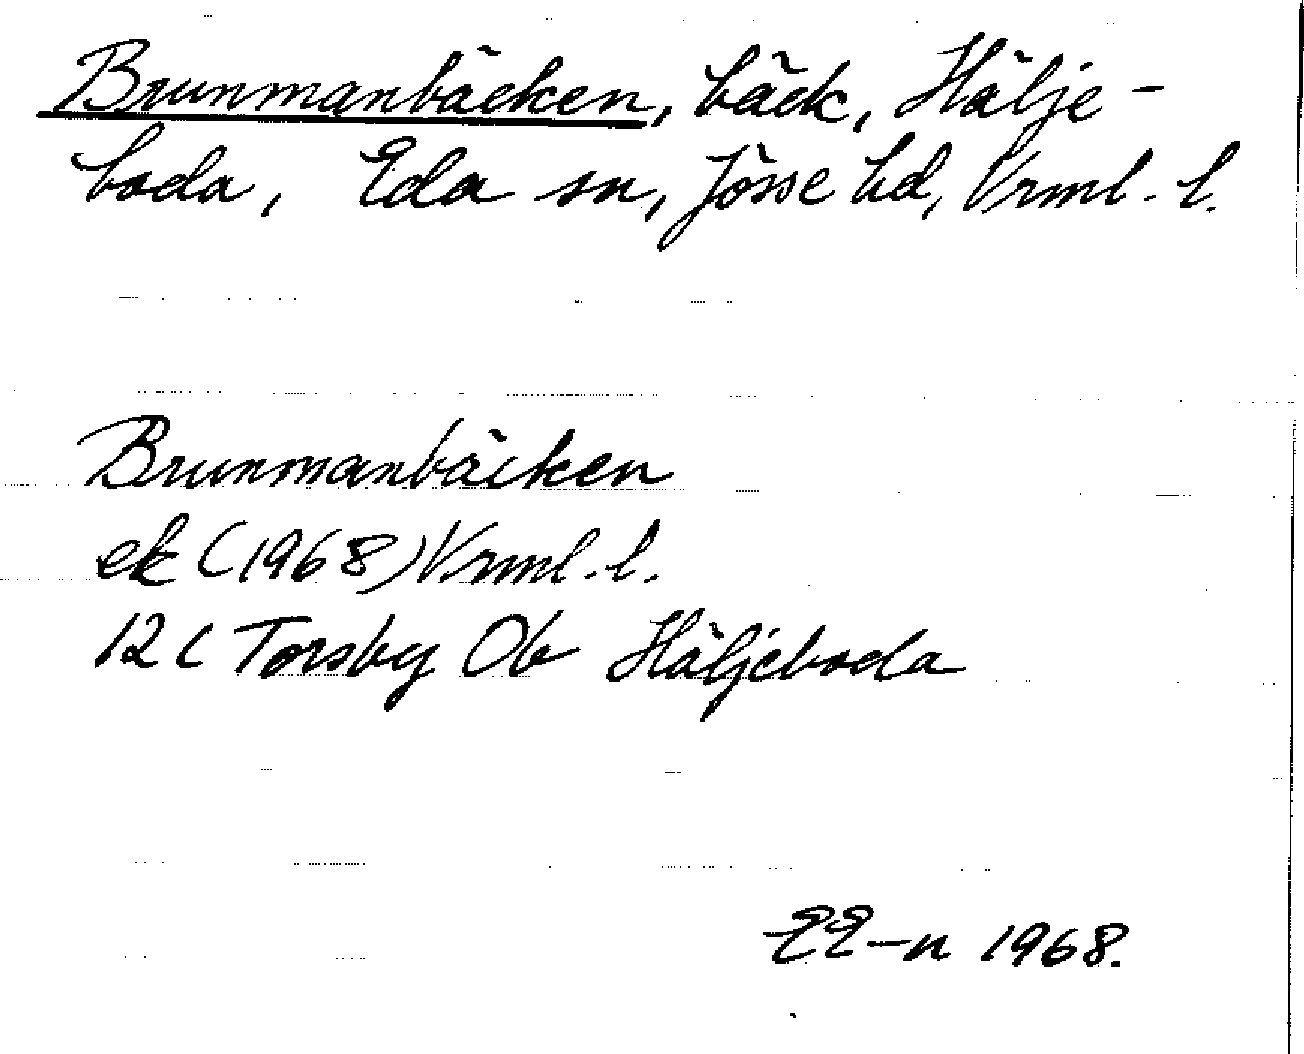 Brunmanbäcken, bäck, Hälje-
boda, Eda sn, Jösse hd, Vrml. l.
Brunmanbäcken
ek (1968) Vrml. l.
12 C Torsby Ob Häljeboda
EE-n 1968.